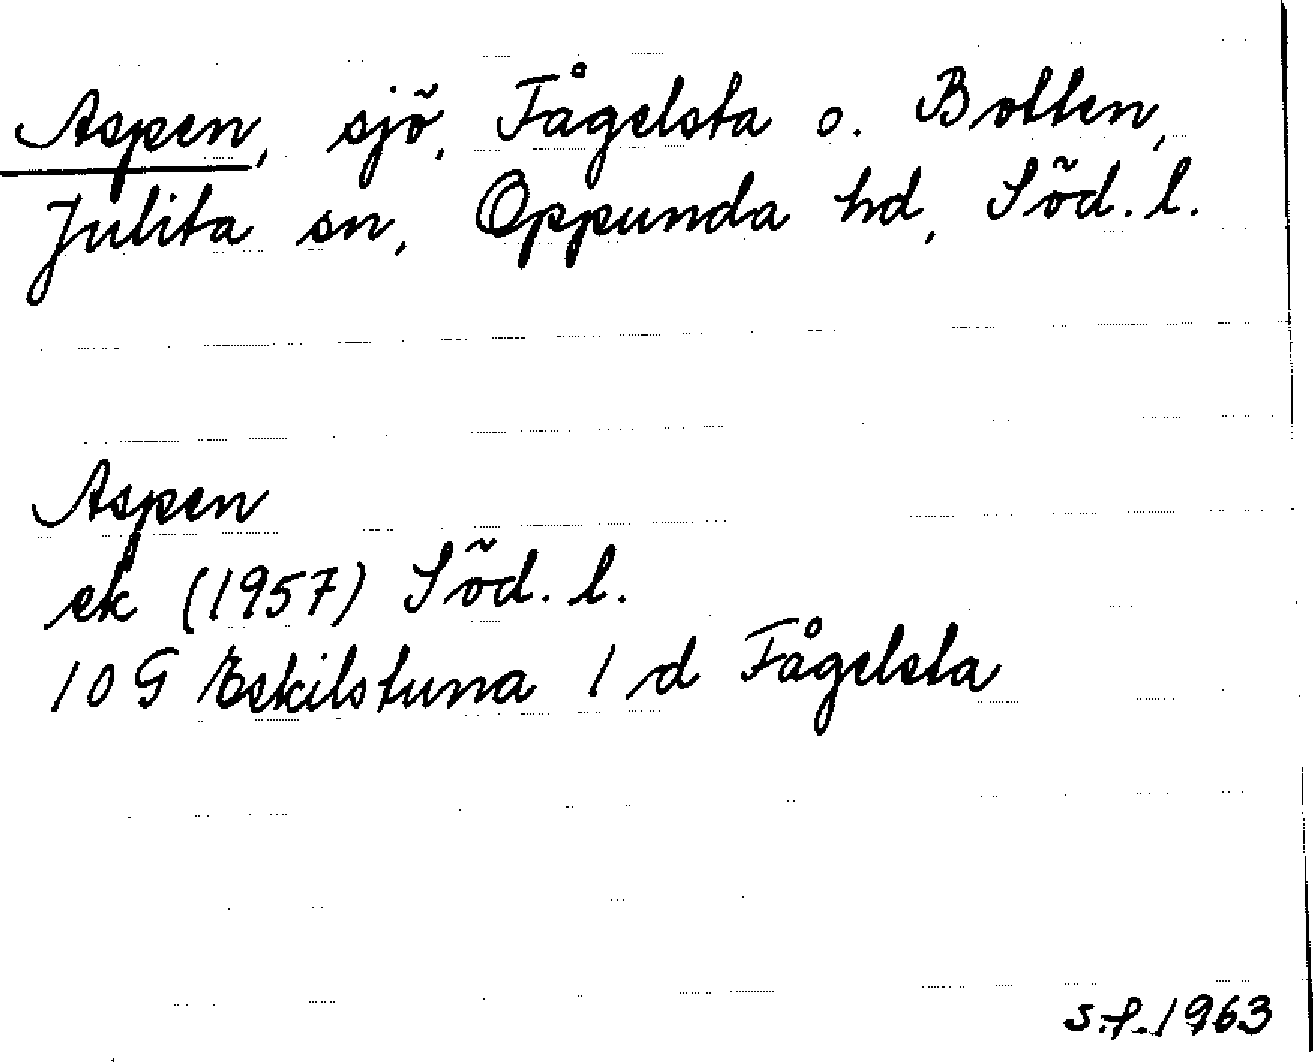 Aspen, sjö, Fågelsta o. Botten,
Julita sn, Oppunda hd, Söd. l.
Aspen
ek (1957) Söd. l.
10 G Eskilstuna 1 d Fågelsta
s.f. 1963